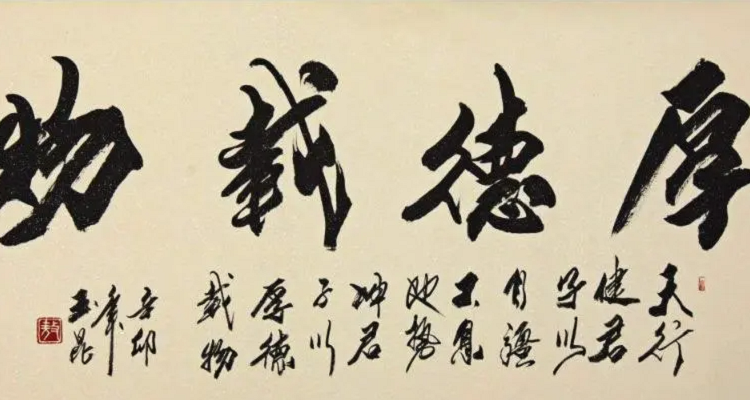 厚德載物
天行
健君
子以
自強
不息
地勢
坤君
子以
厚德
載物
辛卯
年
玉昆